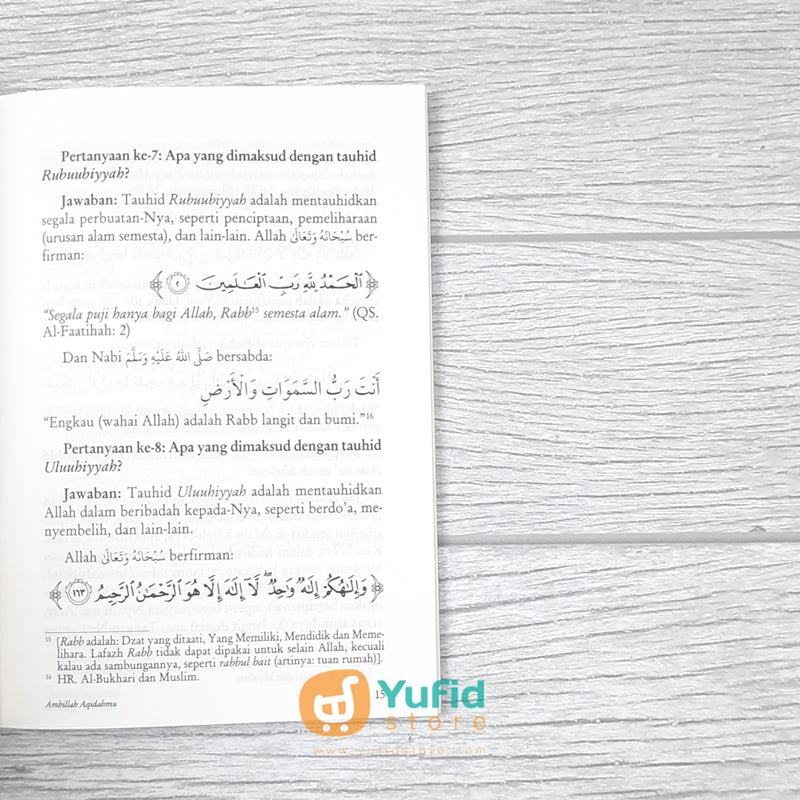 Pertanyaan ke-7: Apa yang dimaksud dengan tauhid
Rubuubiyyah?
Jawaban: Tauhid Rubuubiyyah adalah mentauhidkan
segala perbuatan-Nya, seperti penciptaan, pemeliharaan
(urusan alam semesta), dan lain-lain. Allah سُبْحَانَهُ وَتَعَالَى ber-
firman:
﴿ٱلْحَمْدُ لِلَّهِ رَبِّ ٱلْعَـٰلَمِينَ ۝٢﴾
"Segala puji hanya bagi Allah, Rabb¹⁵ semesta alam." (QS.
Al-Faatihah: 2)
Dan Nabi صَلَّى اللهُ عَلَيْهِ وَسَلَّمَ bersabda:
أَنْتَ رَبُّ السَّمَوَاتِ وَالْأَرْضِ
"Engkau (wahai Allah) adalah Rabb langit dan bumi."¹⁶
Pertanyaan ke-8: Apa yang dimaksud dengan tauhid
Uluuhiyyah?
Jawaban: Tauhid Uluuhiyyah adalah mentauhidkan
Allah dalam beribadah kepada-Nya, seperti berdo'a, me-
nyembelih, dan lain-lain.
Allah سُبْحَانَهُ وَتَعَالَى berfirman:
﴿وَإِلَـٰهُكُمْ إِلَـٰهٌ وَٰحِدٌ ۖ لَّآ إِلَـٰهَ إِلَّا هُوَ ٱلرَّحْمَـٰنُ ٱلرَّحِيمُ ۝١٦٣﴾
¹⁵ [Rabb adalah: Dzat yang ditaati, Yang Memiliki, Mendidik dan Meme-
lihara. Lafazh Rabb tidak dapat dipakai untuk selain Allah, kecuali
kalau ada sambungannya, seperti rabbul bait (artinya: tuan rumah)].
¹⁶ HR. Al-Bukhari dan Muslim.
Ambillah Aqidahmu
15
Yufid
store
www.yufidstore.com